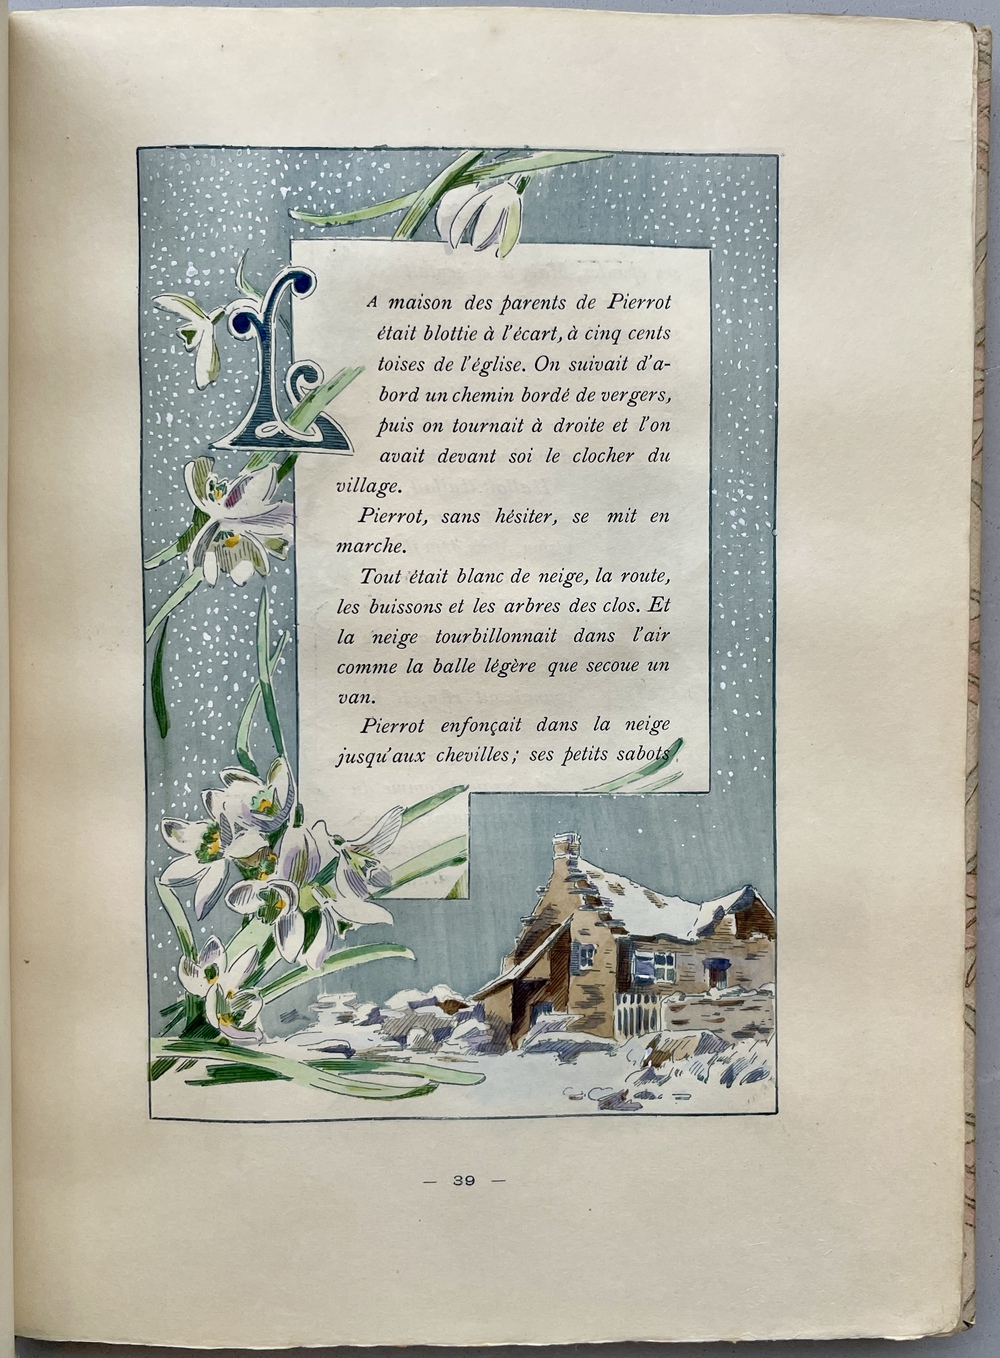 LA maison des parents de Pierrot
était blottie à l'écart, à cinq cents
toises de l'église. On suivait d'a-
bord un chemin bordé de vergers,
puis on tournait à droite et l'on
avait devant soi le clocher du
village.
Pierrot, sans hésiter, se mit en
marche.
Tout était blanc de neige, la route,
les buissons et les arbres des clos. Et
la neige tourbillonnait dans l'air
comme la balle légère que secoue un
van.
Pierrot enfonçait dans la neige
jusqu'aux chevilles; ses petits sabots
— 39 —